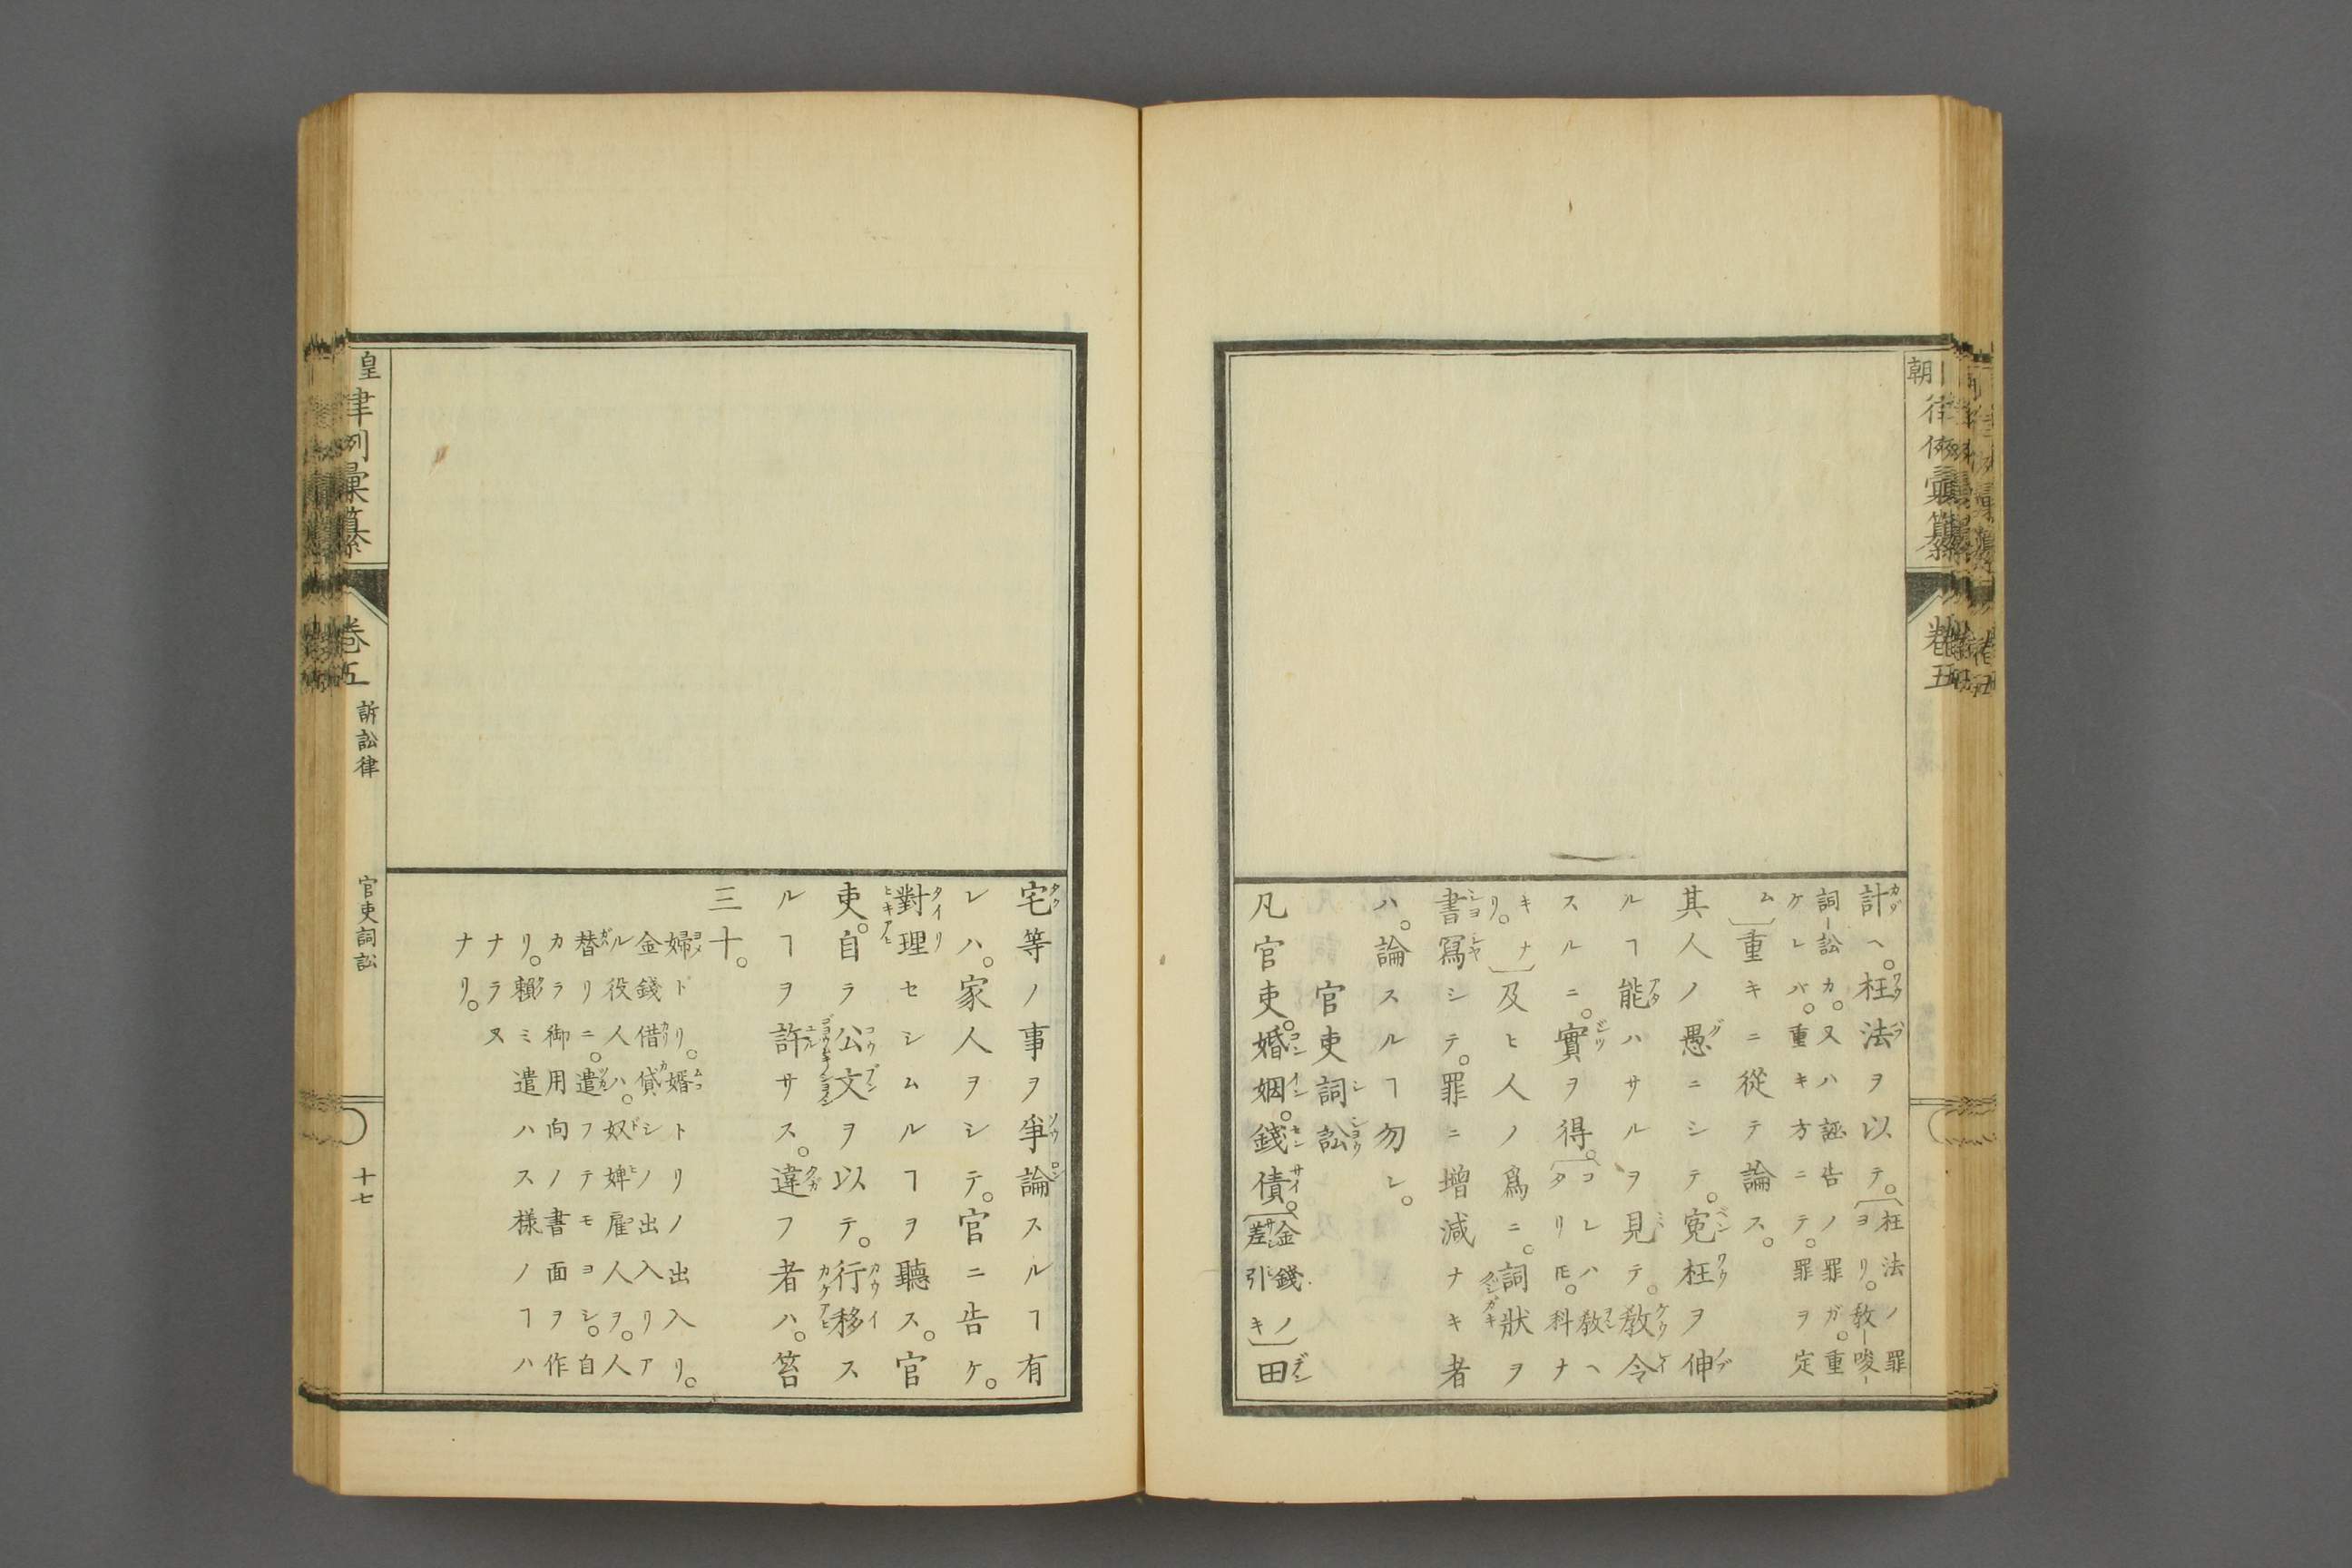 計ヘ。枉法ヲ以テ。〔枉法ノ罪
ヨリ。敎唆
詞訟カ。又ハ誣告ノ罪ガ。重
ケレバ。重キ方ニテ。罪ヲ定
ム〕重キニ從テ論ス。
其人ノ愚ニシテ。寃枉ヲ伸
ルヿ能ハサルヲ見テ。敎令
スルニ。實ヲ得。〔コレハ敎ヘ
タリ𪜈。科ナ
キナ〕
リ。及ヒ人ノ爲ニ。詞狀ヲ
書寫シテ。罪ニ增減ナキ者
ハ。論スルヿ勿レ。
官吏詞訟
凡官吏。婚姻。錢債。〔金錢ノ
差引キ〕田
宅等ノ事ヲ爭論スルヿ有
レハ。家人ヲシテ。官ニ告ケ。
對理セシムルヿヲ聽ス。官
吏。自ラ公文ヲ以テ。行移ス
ルヿヲ許サス。違フ者ハ。笞
三十。
婦トリ。婿トリノ出入リ。
金錢借貸シノ出入リア
ル役人ハ。奴婢雇人ヲ。人
替リニ。遣フテモヨシ。自
カラ御用向ノ書面ヲ作
リ。賴ミ遣ハス様ノヿハ
ナラヌ
ナリ。
皇
律例彙纂
卷五
訴訟律
官吏詞訟
十七
朝
律例彙纂
卷五